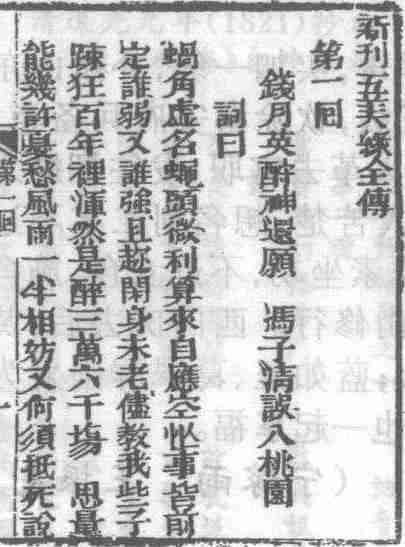 新刊五美緣全傳
第一回
錢月英酧神還願　馮子清誤入桃園
詞曰
蝸角虛名蠅頭微利算來自應空忙事皆前
定誰弱又誰強且趂閑身未老儘教我些子
踈狂百年裡渾然是醉三萬六千塲　思量
能幾許憂愁風雨一半相妨又何須抵死說
第一回